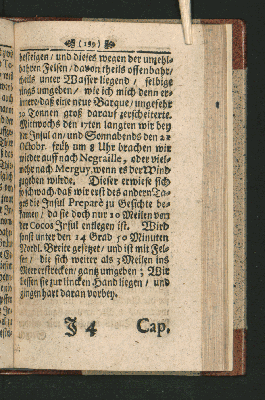 (189)
hefftigen / und dieses wegen der unzehl-
bahren Felsen / davon theils offenbahr/
theils unter Wasser liegend / selbige
rings umgeben / wie ich mich denn er-
innere / daß eine neue Barque / ungefehr
30 Tonnen groß darauf zerscheiterte.
Mittwochs den 17ten langten wir bey
der Insul an / und Sonnabends den 21
Octobr. früh um 8 Uhr brachen wir
wieder auff nach Negraille / oder viel-
mehr nach Merguy, wenn es der Wind
zugeben würde. Dieser erwiese sich
so schwach daß wir erst des andern Ta-
ges die Insul Preparé zu Gesichte be-
kamen / da sie doch nur 10 Meilen von
der Cocos Insul entlegen ist. Wird
sonst unter den 14 Grad 50 Minuten
Nordl. Breite gesetzet / und ist mit Fel-
sen / die sich weiter als 3 Meilen ins
Meer erstrecken / gantz umgeben; Wir
liessen sie zur lincken Hand liegen / und
gingen hart daran vorbey.
J 4 Cap.